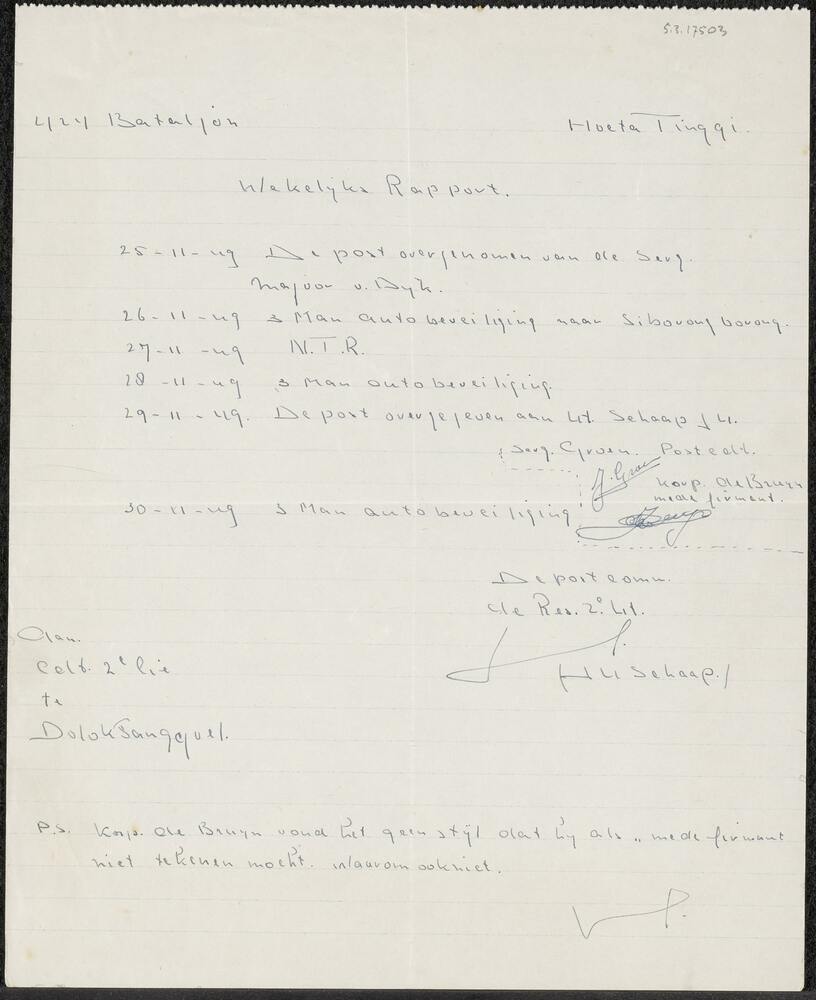 5.3.17503
424 Bataljon
Hoeta Tinggi.
Wekelijks Rapport.
25-11-49 De post overgenomen van de Serg.
Majoor v. Dyk.
26-11-49 3 Man autobeveiliging naar Siborong borong.
27-11-49 N.T.R.
28-11-49 3 Man autobeveiliging.
29-11-49. De post overgegeven aan Lt. Schaap J H.
Serg. Groen. Postcdt.
J. Groen
Korp. de Bruyn
mede firmant.
30-11-49 3 Man autobeveiliging
De postcomm.
de Res. 2e Lt.
Aan.
Cdt. 2e Cie
te
Doloksanggoel.
/J H Schaap./
P.S. Korp. de Bruyn vond het geen stijl dat hij als „mede firmant
niet tekenen mocht. Waarom ook niet.